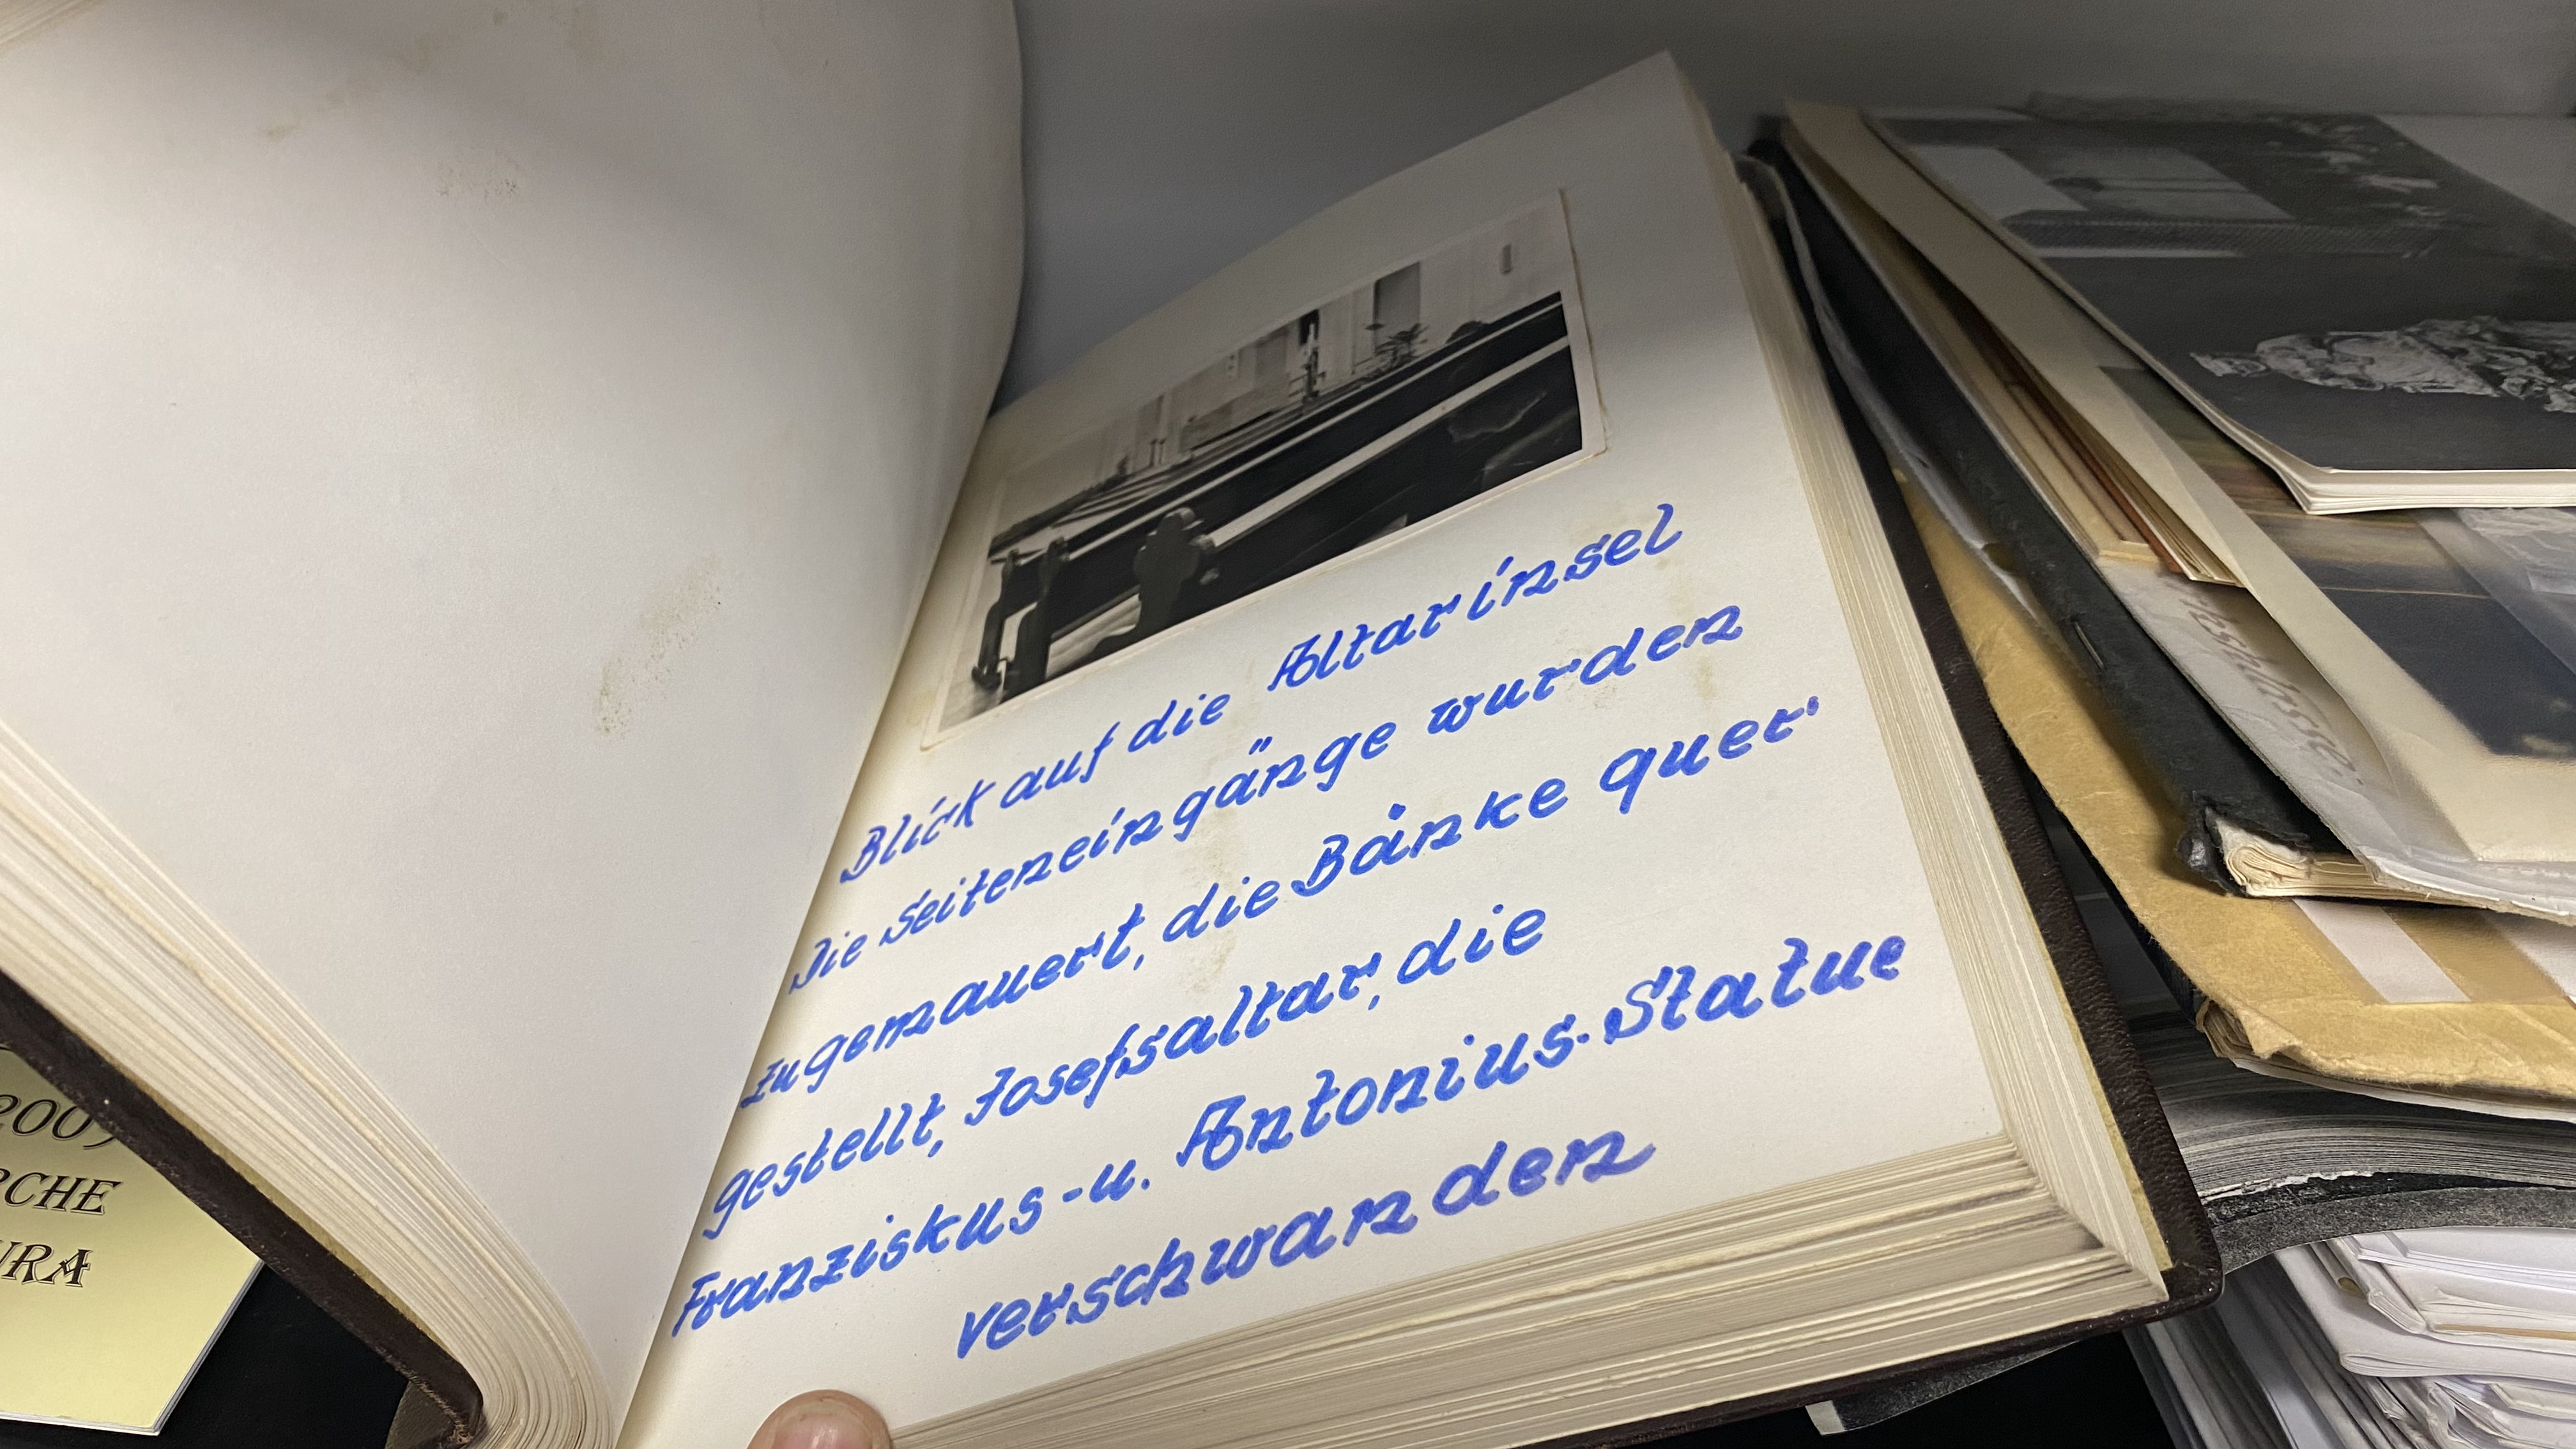 Blick auf die Altarinsel
Die Seiteneingänge wurden
zugemauert, die Bänke quer
gestellt, Josefsaltar, die
Franziskus-u. Antonius-Statue
verschwanden